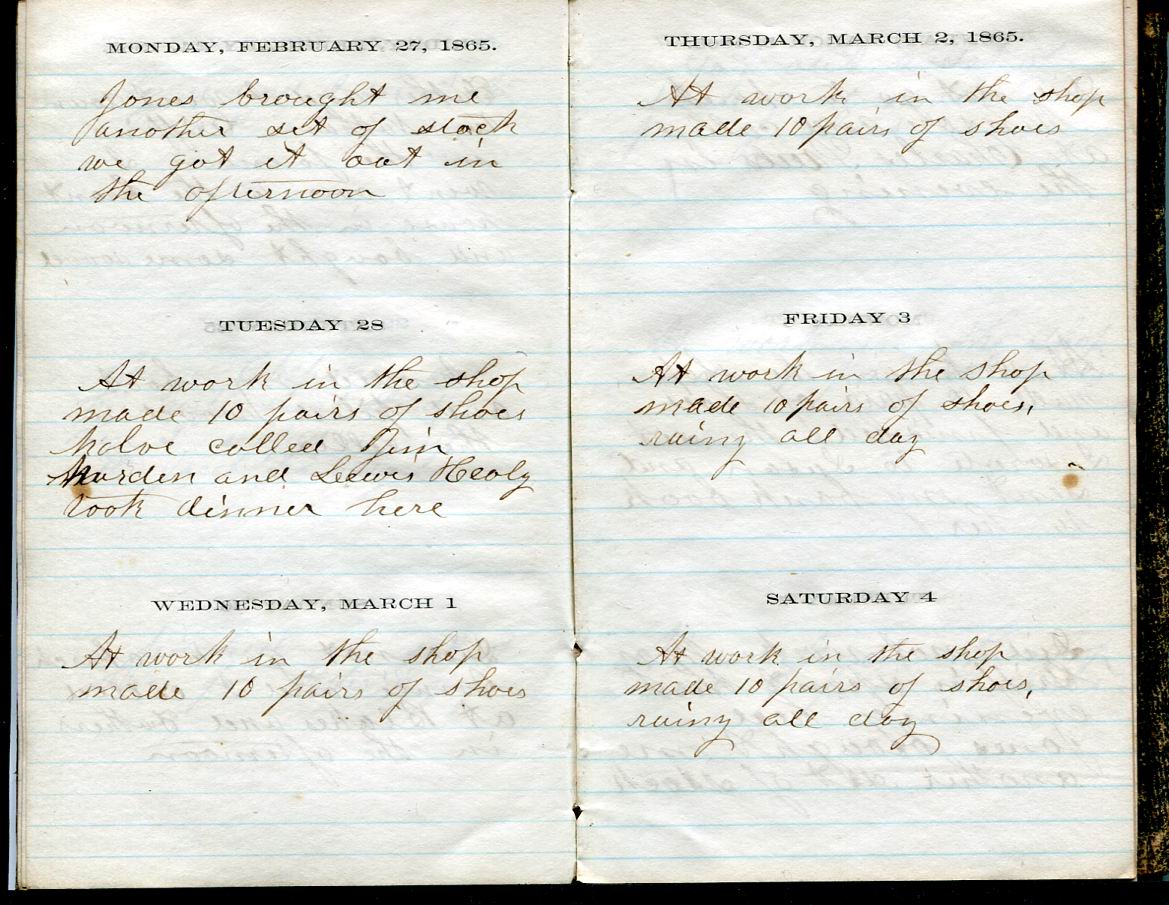 MONDAY, FEBRUARY 27, 1865.
Jones brought me
another set of stock
we got it out in
the afternoon
TUESDAY 28
At work in the shop
made 10 pairs of shoes
called Jim
and Lewis Healy
took dinner here
WEDNESDAY, MARCH 1
At work in the shop
made 10 pairs of shoes
THURSDAY, MARCH 2, 1865.
At work in the shop
made 10 pairs of shoes
FRIDAY 3
At work in the shop
made 10 pairs of shoes,
rainy all day
SATURDAY 4
At work in the shop
made 10 pairs of shoes,
rainy all day